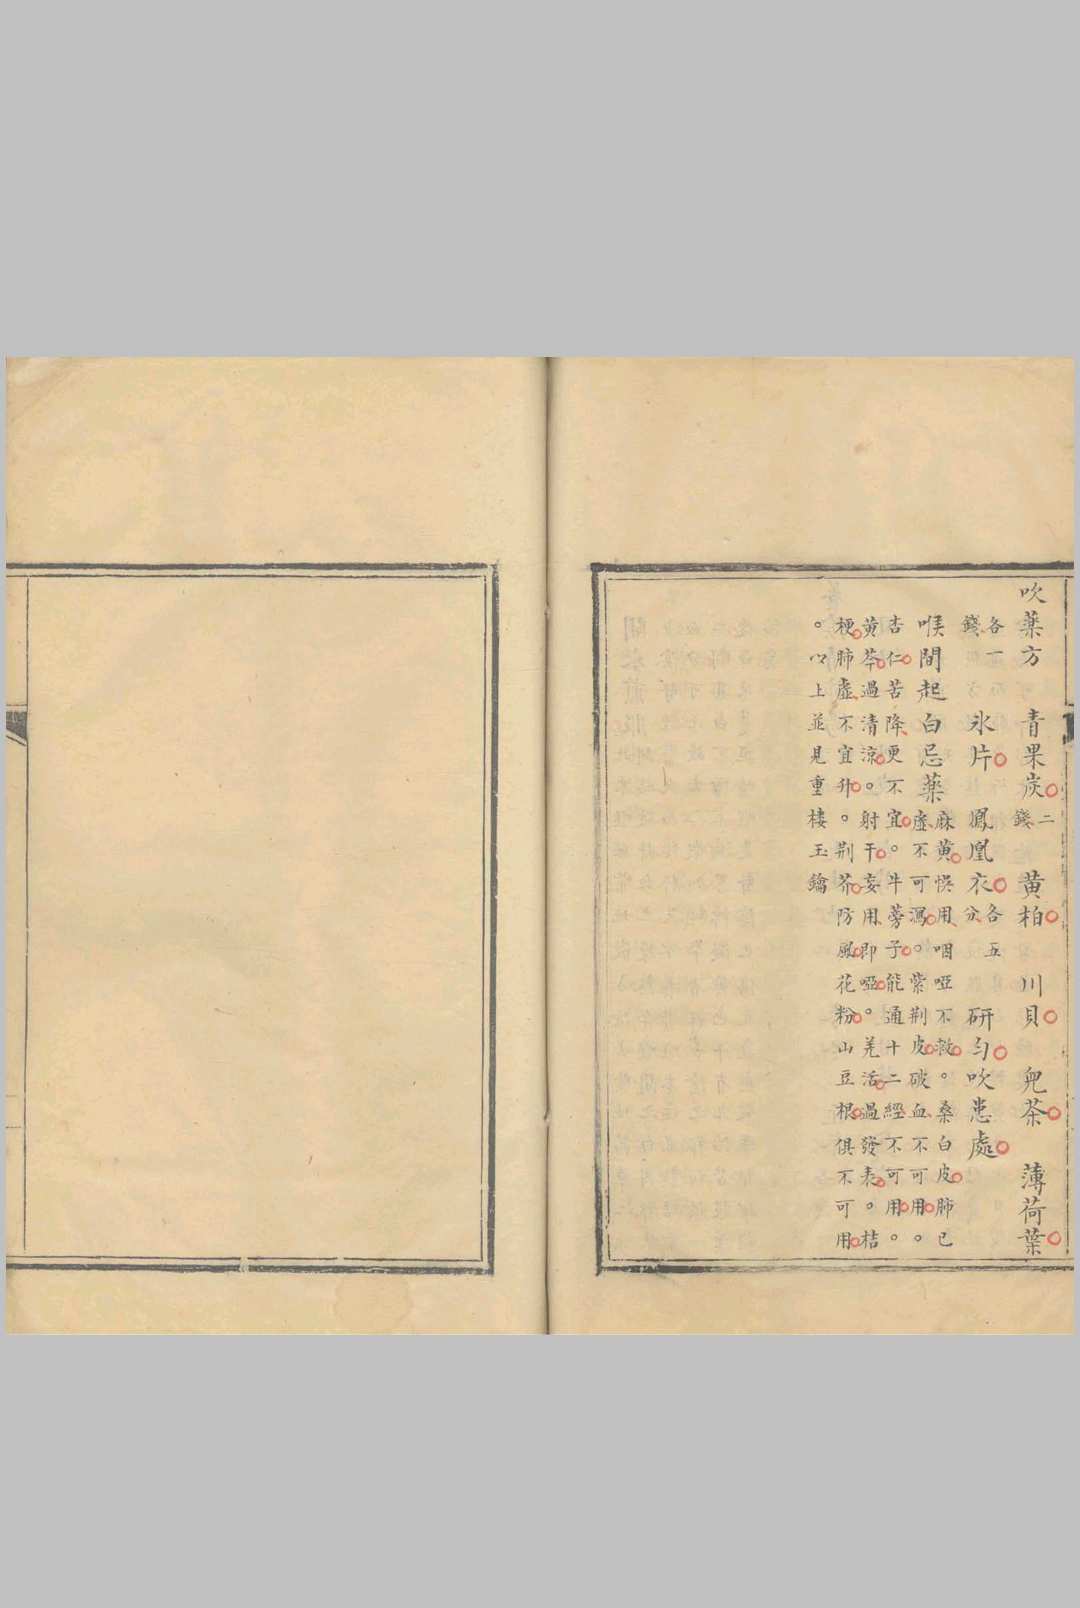 吹藥方　青果炭二錢　黃柏　川貝　兒茶　薄荷葉
各一錢　冰片　鳳凰衣各五分　研勻吹患處
喉間起白忌藥
麻黃悞用咽啞不救。桑白皮肺已
虛不可瀉。紫荆皮破血不可用。
杏仁苦降更不宜。牛蒡子能通十二經不可用。
黃芩過清涼。射干妄用即啞。羌活過發表。桔
梗肺虛不宜升。荆芥防風花粉山豆根俱不可用
。以上並見重樓玉鑰